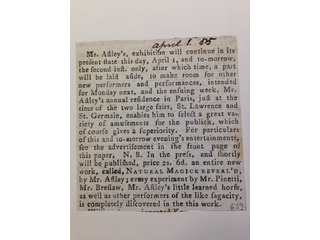 april 1. 85
Mr. Astley's, exhibition will continue in its
present state this day, April 1, and to-morrow,
the second inst. only, after which time, a part
will be laid aside, to make room for other
new performers and performances, intended
for Monday next, and the ensuing week. Mr.
Astley's annual residence in Paris, just at the
time of the two large fairs, St. Lawrence and
St. Germain, enables him to select a great va-
riety of amusements for the publick, which
of course gives a superiority. For particulars
of this and to-morrow evening's entertainments,
see the advertisement in the front page of
this paper, N. B. In the press, and shortly
will be published, price 2s. 6d. an entire new
work, called, NATURAL MAGICK REVEAL'D,
by Mr. Astley; every experiment by Mr. Pinetti,
Mr. Breslaw, Mr. Astley's little learned horse,
as well as other performers of the like sagacity,
is completely discovered in the this work.